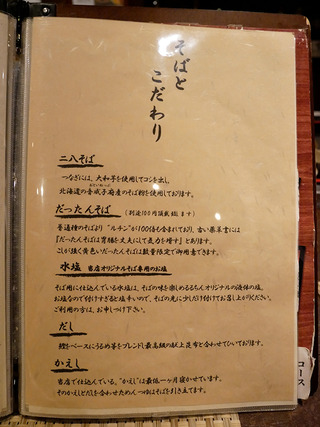 そばと
こだわり
二八そば
つなぎには、大和芋を使用してコシを出し、
北海道の音威子府産のそば粉を使用しております。
だったんそば（別途100円頂戴致します）
普通種のそばより"ルチン"が100倍も含まれており、古い薬草書には
『だったんそばは胃腸を丈夫にして気力を増す』とあります。
こしが強く黄色いだったんそばは数量限定で御用意できます。
水塩 当店オリジナルそば専用のお塩
そば用に仕込んでいる水塩は、そばの味を楽しめるもりんオリジナルの液体の塩。
お塩なので付けすぎると塩辛いので、そばの先に少しだけ付けてお召し上がりください。
ご利用の方は、お申しつけ下さい。
だし
鰹をベースにうるめ等をブレンドし最高級の献上昆布と合わせてひいております。
かえし
当店で仕込んでいる、"かえし"は最低一ヶ月寝かせています。
そのかえしとだしを合わせためんつゆはそばを引き立てます。
コース